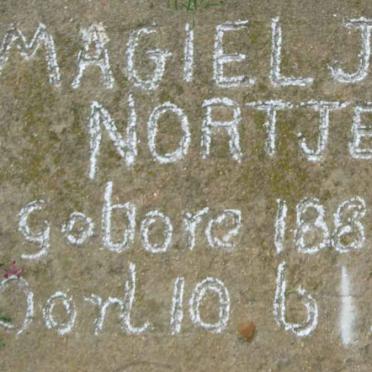 MAGIEL J
NORTJE
gebore 188
Oorl 10 6 1